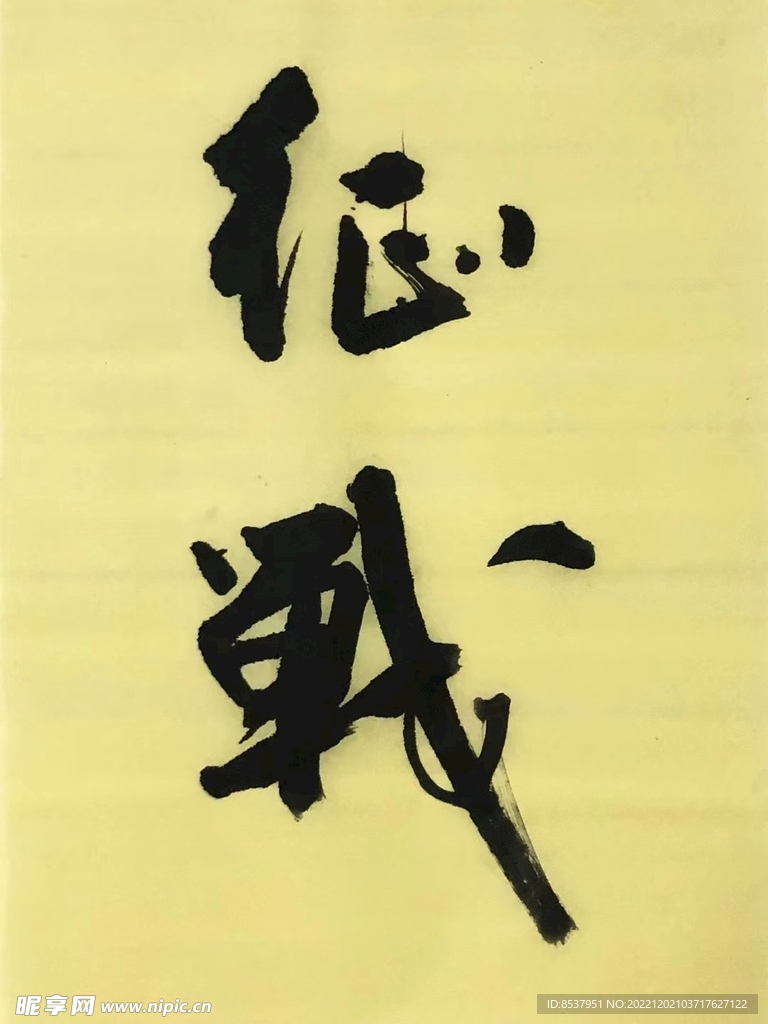 征
戦
昵享网 www.nipic.cn
ID:8537951 NO:20221202103717627122